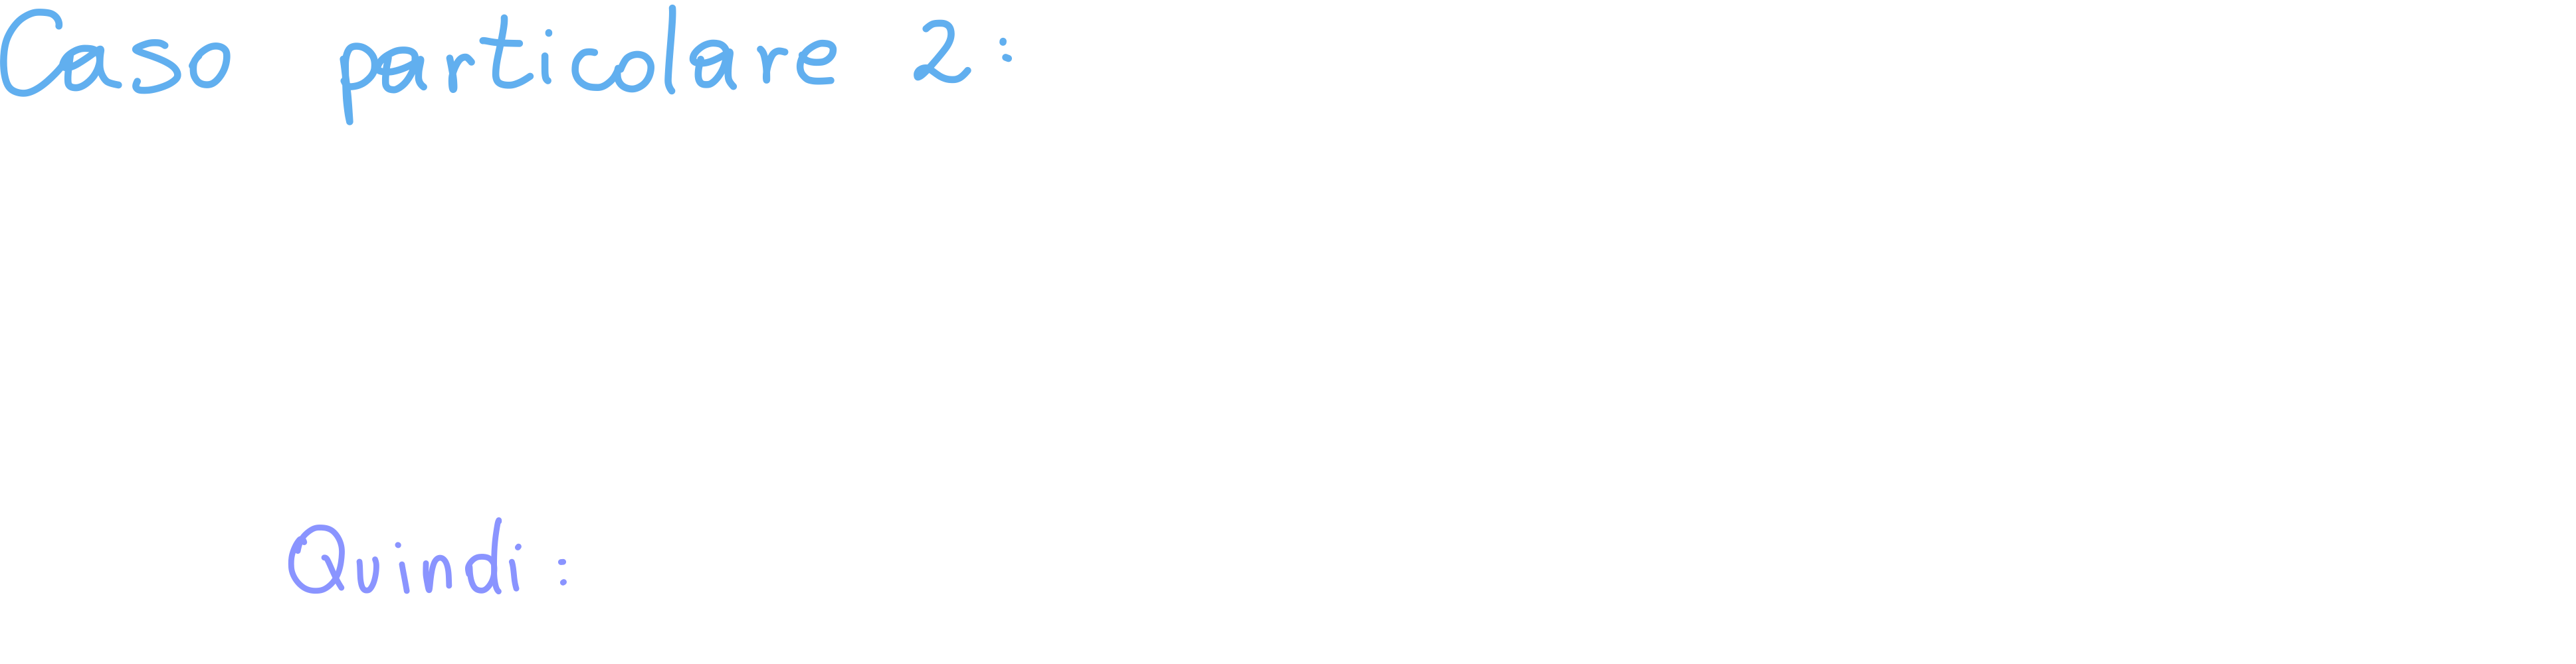 Caso particolare 2:
Quindi: